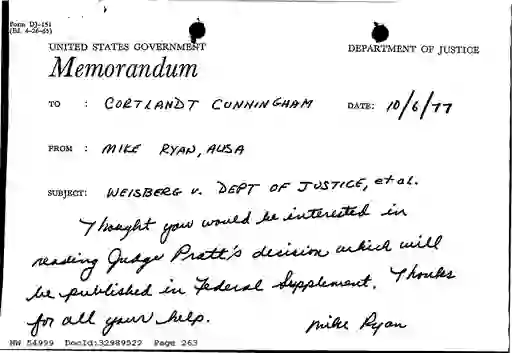 Form DJ-151
(Ed. 4-26-65)
UNITED STATES GOVERNMENT DEPARTMENT OF JUSTICE
Memorandum
TO : CORTLANDT CUNNINGHAM DATE: 10/6/77
FROM : MIKE RYAN, AUSA
SUBJECT: WEISBERG v. DEPT OF JUSTICE, et al.
Thought you would be interested in
reading Judge Pratt's decision which will
be published in Federal Supplement. Thanks
for all your help.
Mike Ryan
NW 54999 DocId:32989529 Page 263